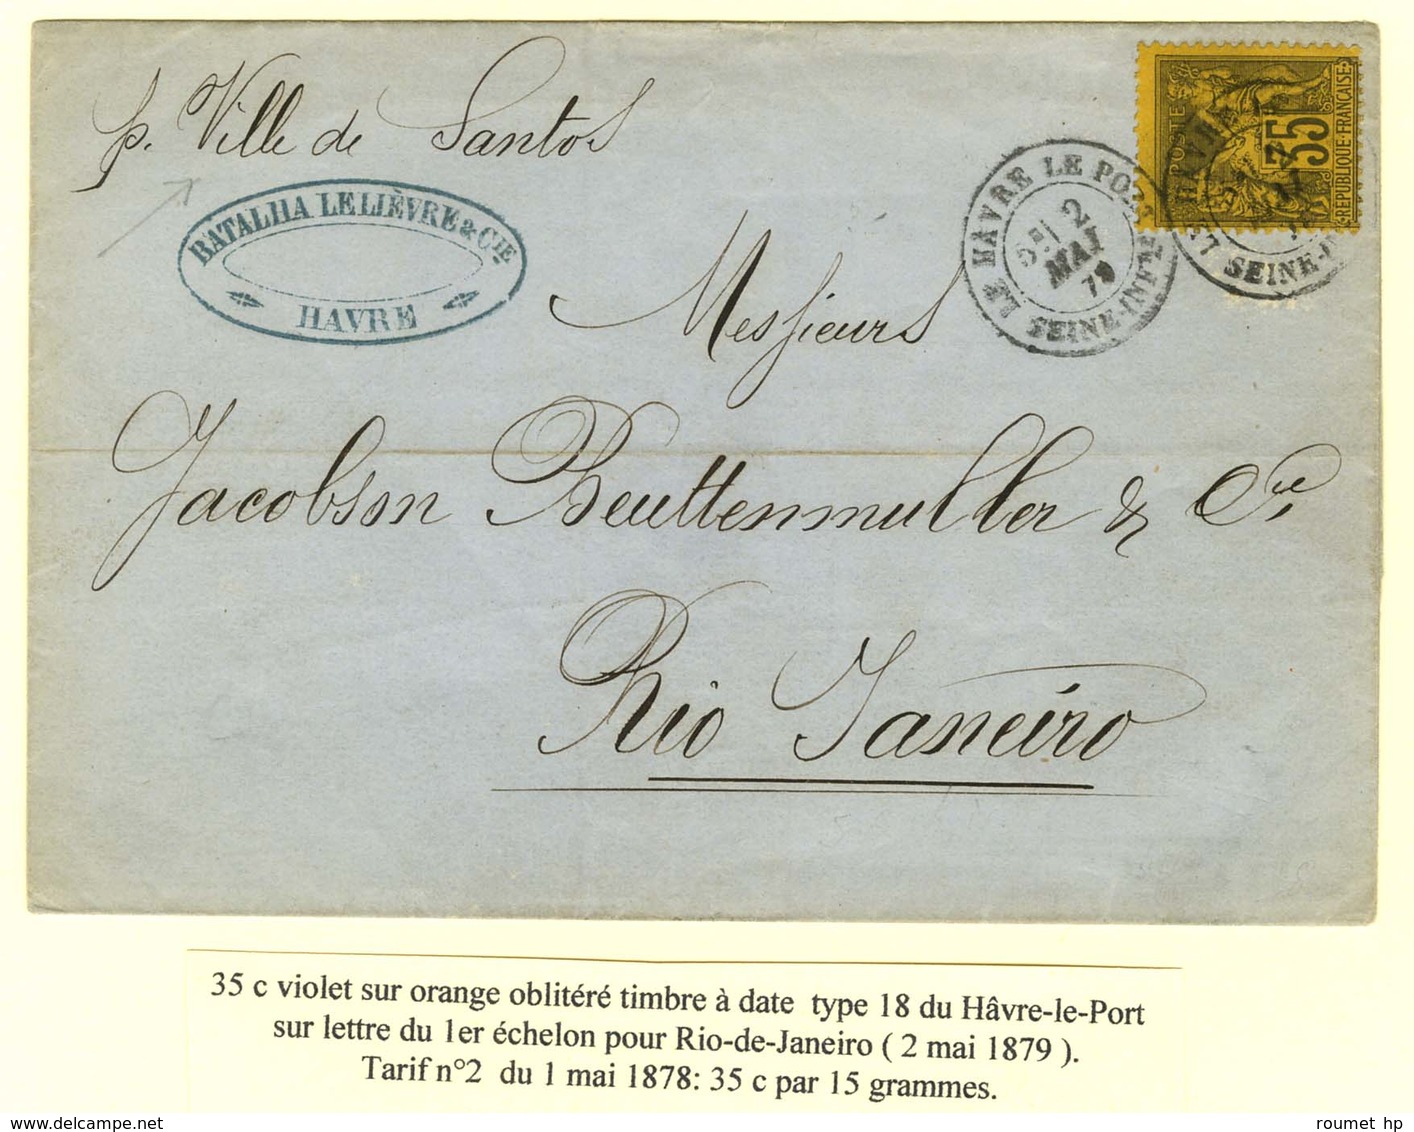 p. Ville de Santos
BATALHA LELIÈVRE & CIE
HAVRE
LE HAVRE LE PORT
5E/ 2
MAI
79
SEINE-INFRE
POSTE
35
REPUBLIQUE FRANÇAISE
SEINE-I
Messieurs
Jacobson Beuttenmuller & Cie
Rio Janeiro
35 c violet sur orange oblitéré timbre à date type 18 du Hâvre-le-Port
sur lettre du 1er échelon pour Rio-de-Janeiro ( 2 mai 1879 ).
Tarif n°2 du 1 mai 1878: 35 c par 15 grammes.
roumet hp